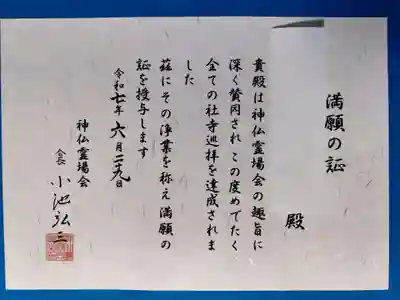 満願の証
殿
貴殿は神仏霊場会の趣旨に
深く賛同されこの度めでたく
全ての社寺巡拝を達成されま
した
茲にその浄業を称え満願の
証を授与します
令和七年六月二十九日
神仏霊場会
会長 小池弘三